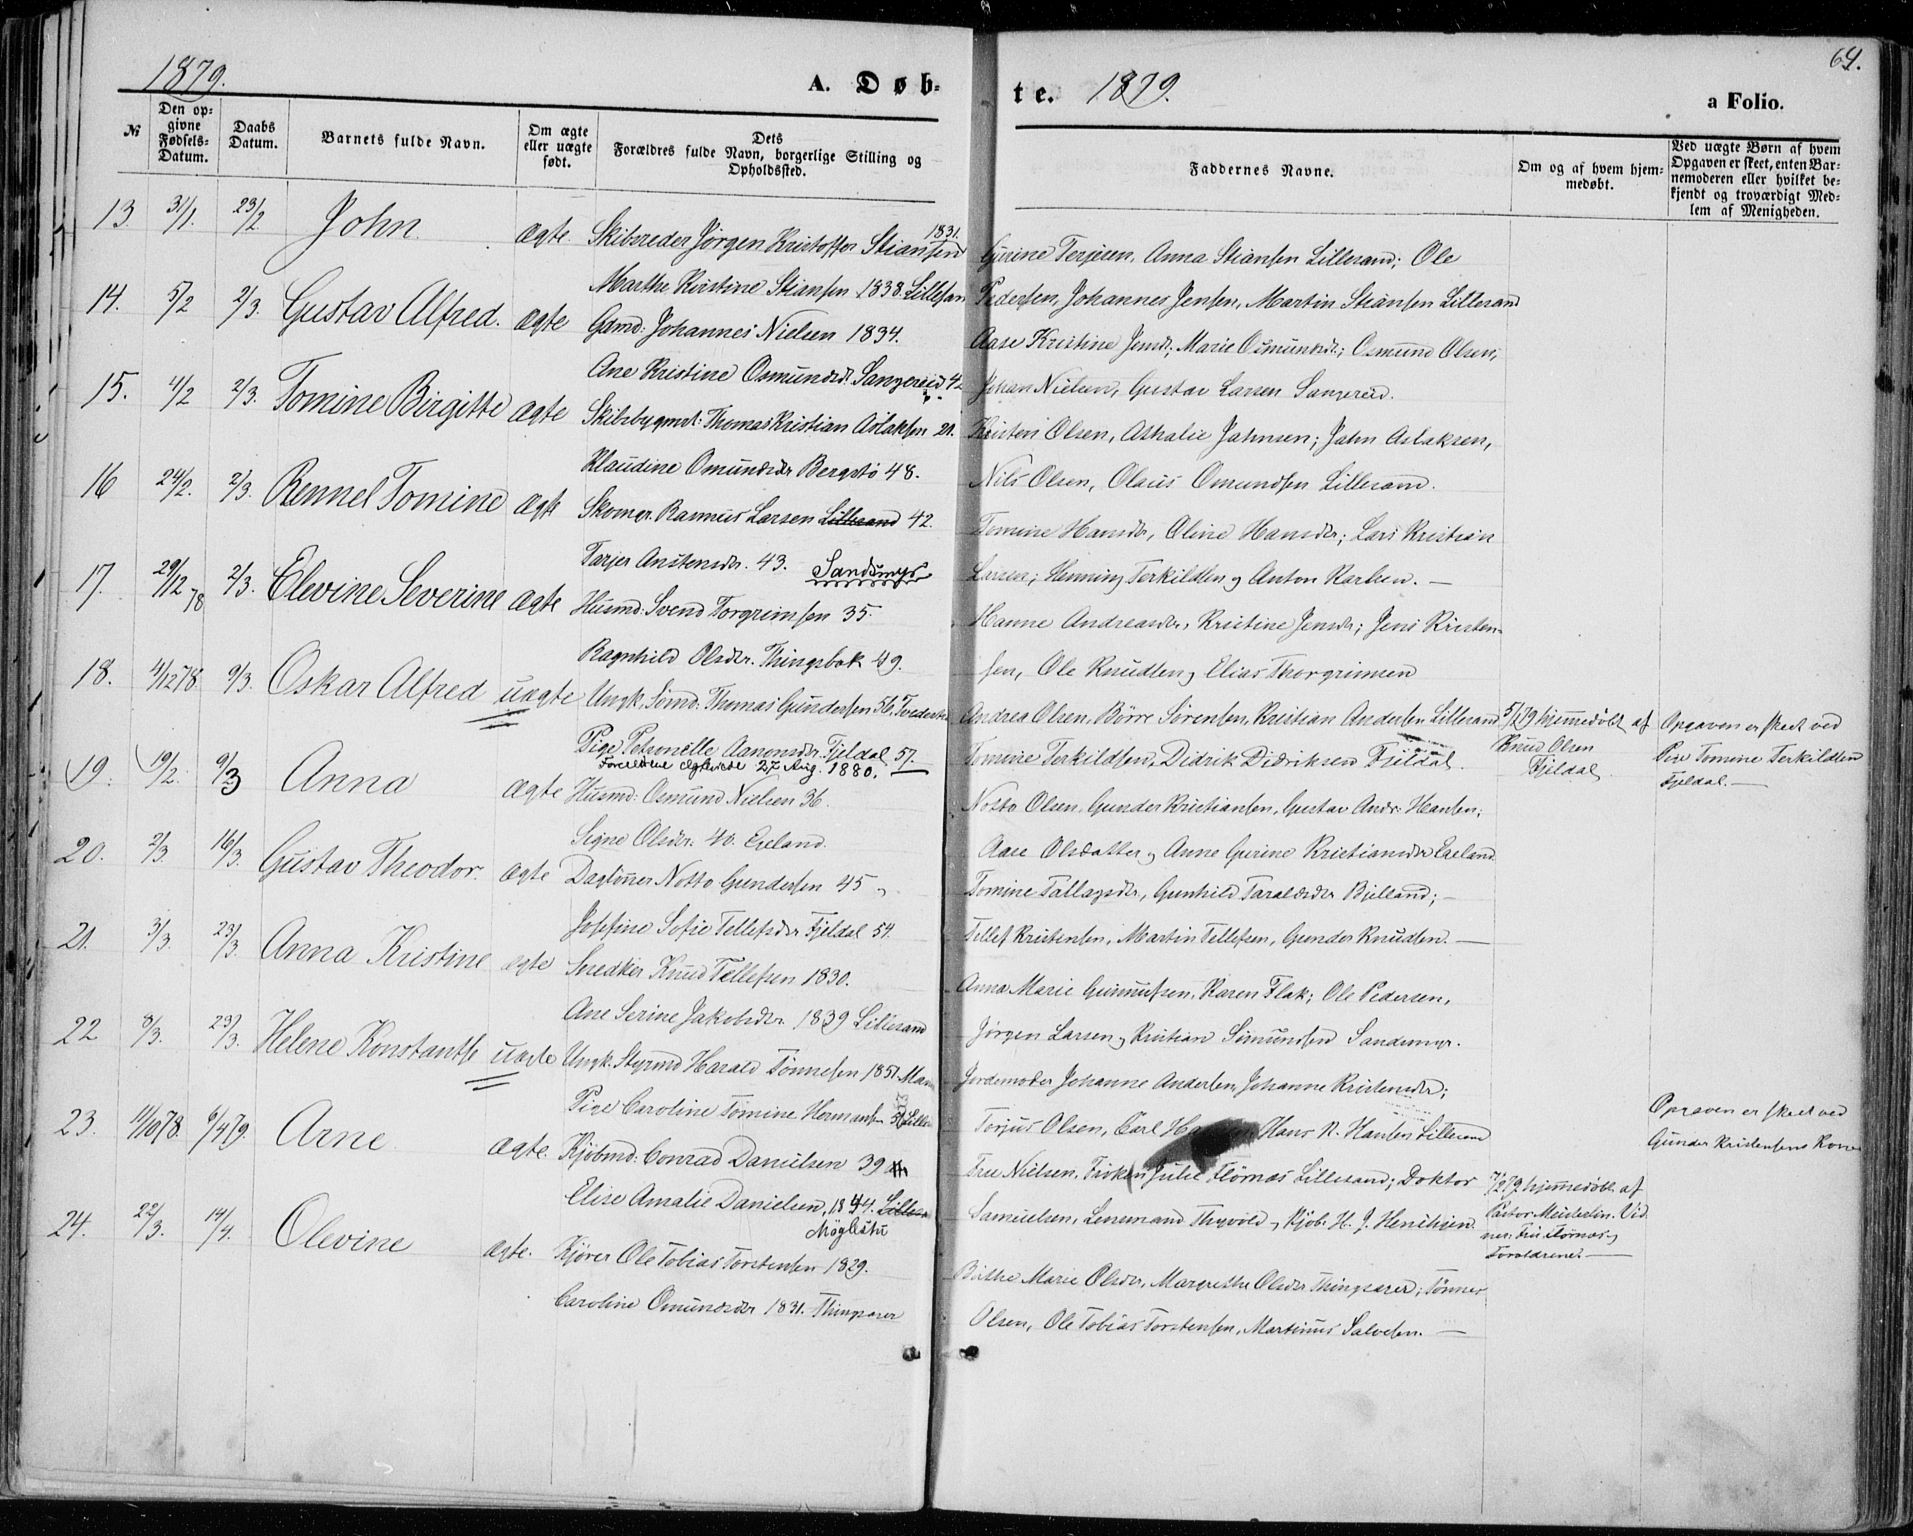 1879.
A. Døb-
№
Den op-
givne
Fødsels-
Datum.
Daabs
Datum.
Barnets fulde Navn.
Om ægte
eller uægte
født.
Dets
Forældres fulde Navn, borgerlige Stilling og
Opholdssted.
13. 31/1. 23/2 John. ægte. Skibsreder Jørgen Kristoffer Stiansen 1831.
Marthe Kristine Stiansen 1838. Lillesan
14. 5/2 2/3. Gustav Alfred. ægte Gamd: Johannes Nielsen 1834.
Ane Kristine Osmundsdr. Sangereid 42
15. 4/2 2/3. Tomine Birgitte ægte Skibsbygmst: Thomas Kristian Aslaksen 21.
Klaudine Omundsdr Bergstø 48.
16 24/2. 2/3. Rennel Tomine ægte Skomgr. Rasmus Larsen Lillesand 42.
Tarjer Anstensdr. 43. Sandsmyr
17. 29/12 78 2/3. Elevine Severine ægte Husmd: Svend Torgrimsen 35.
Ragnhild Olsdr. Thingsbok 49.
18. 4/12 78. 9/3. Oskar Alfred uægte Ungk. Sømd: Thomas Gundersen 56,
Pige Petronelle Aanonsdr. Fjeldal 57.
Forældrene ægteviede 27 Aug. 1880.
19. 19/2. 9/3 Anna ægte Husmd: Osmund Nielsen 36.
Signe Olsdr. 40. Eieland.
20. 2/3. 16/3. Gustav Theodor. ægte Dagløner Notto Gundersen 45,
Josefine Sofie Tellefsdr Fjeldal 54.
21. 3/3. 23/3. Anna Kristine ægte Snedker Knud Tellefsen 1830.
Ane Serine Jakobsdr. 1839 Lillesand
22 8/3. 23/3. Helene Konstantse uægte Ungk. Styrmd Harald Tønnesen 1851.
Pige Caroline Tomine Hermansen
23. 11/10 78. 6/4 79. Arne ægte. Kjøbmd: Conrad Danielsen 39
Elise Amalie Danielsen, 1844.
Møglestu
24. 22/3. 14/4. Olevine ægte. Kjører Ole Tobias Torstensen 1829.
Caroline Omundsdr 1831. Thingsaker
te. 1879.
64.
a Folio.
Faddernes Navne.
Om og af hvem hjem-
medøbt.
Ved uægte Børn af hvem
Opgaven er skeet, enten Bar-
nemoderen eller hvilket be-
kjendt og troværdigt Med-
lem af Menigheden.
Gurine Terjesen, Anna Stiansen Lillesand; Ole
Pedersen, Johannes Jensen, Martin Stiansen Lillesand
Aase Kristine Jensdr; Marie Osmundsdr; Osmund Olsen,
Johan Nielsen, Gustav Larsen Sangereid.
Kristen Olsen, Athalie Jahnsen; Jahn Aslaksen,
Nils Olsen, Olaus Omundsen Lillesand.
Tomine Hansdr, Oline Hansdr; Lars Kristian
Larsen; Henning Terkildsen og Anton Karlsen. —
Hanne Andreasdr, Kristine Jensdr; Jens Kristen-
sen, Ole Knudsen, Elias Thorgrimsen
Andrea Olsen, Børre Sørensen, Kristian Andersen Lillesand
Tomine Terkildsen, Didrik Didriksen Fjeldal.
5/1 79 hjemmedøbt af
Knud Olsen
Fjeldal.
Opgaven er skeet ved
Pige Tomine Terkildsen
Fjeldal. —
Notto Olsen, Gunder Kristiansen, Gustav Andr. Hansen;
Aase Olsdatter og Anne Gurine Kristiansdr Eieland
Tomine Tallagsdr, Gunhild Taraldsdr Bjelland; —
Tellef Kristensen, Martin Tellefsen, Gunder Knudsen. —
Anna Marie Gunnufsen, Karen Flak; Ole Pedersen,
Jørgen Larsen, Kristian Simundsen Sandsmyr.
Jordemoder Johanne Andersen, Johanne Kristensdr;
Terjus Olsen, Carl Hans N. Hansen Lillesand
Opgaven er skeet ved
Gunder Kristensens Kone
Fru Nielsen, Frøken Julie Tørnæs Lillesand; Doktor
Samuelsen, Lensmand Thygvold, Kjøb: H. J. Henrihsen
7/2 79 hjemmedøbt af
Pastor Meidertin. Vid
ner: Fru Tørnæs og
Forældrene —
Birthe Marie Olsdr, Margrethe Olsdr Thingsaker, Tønnes
Olsen, Ole Tobias Torstensen, Martinus Salvesen. —